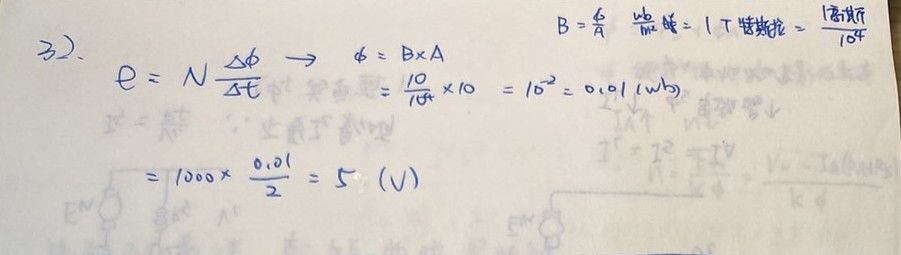 B = ϕ/A wb/m² = 1 T 特斯拉 = 1高斯/10⁴
32.
e = N Δϕ/Δt → ϕ = B×A
= 10/10⁴ ×10 = 10⁻² = 0.01 (wb)
= 1000 × 0.01/2 = 5 (V)